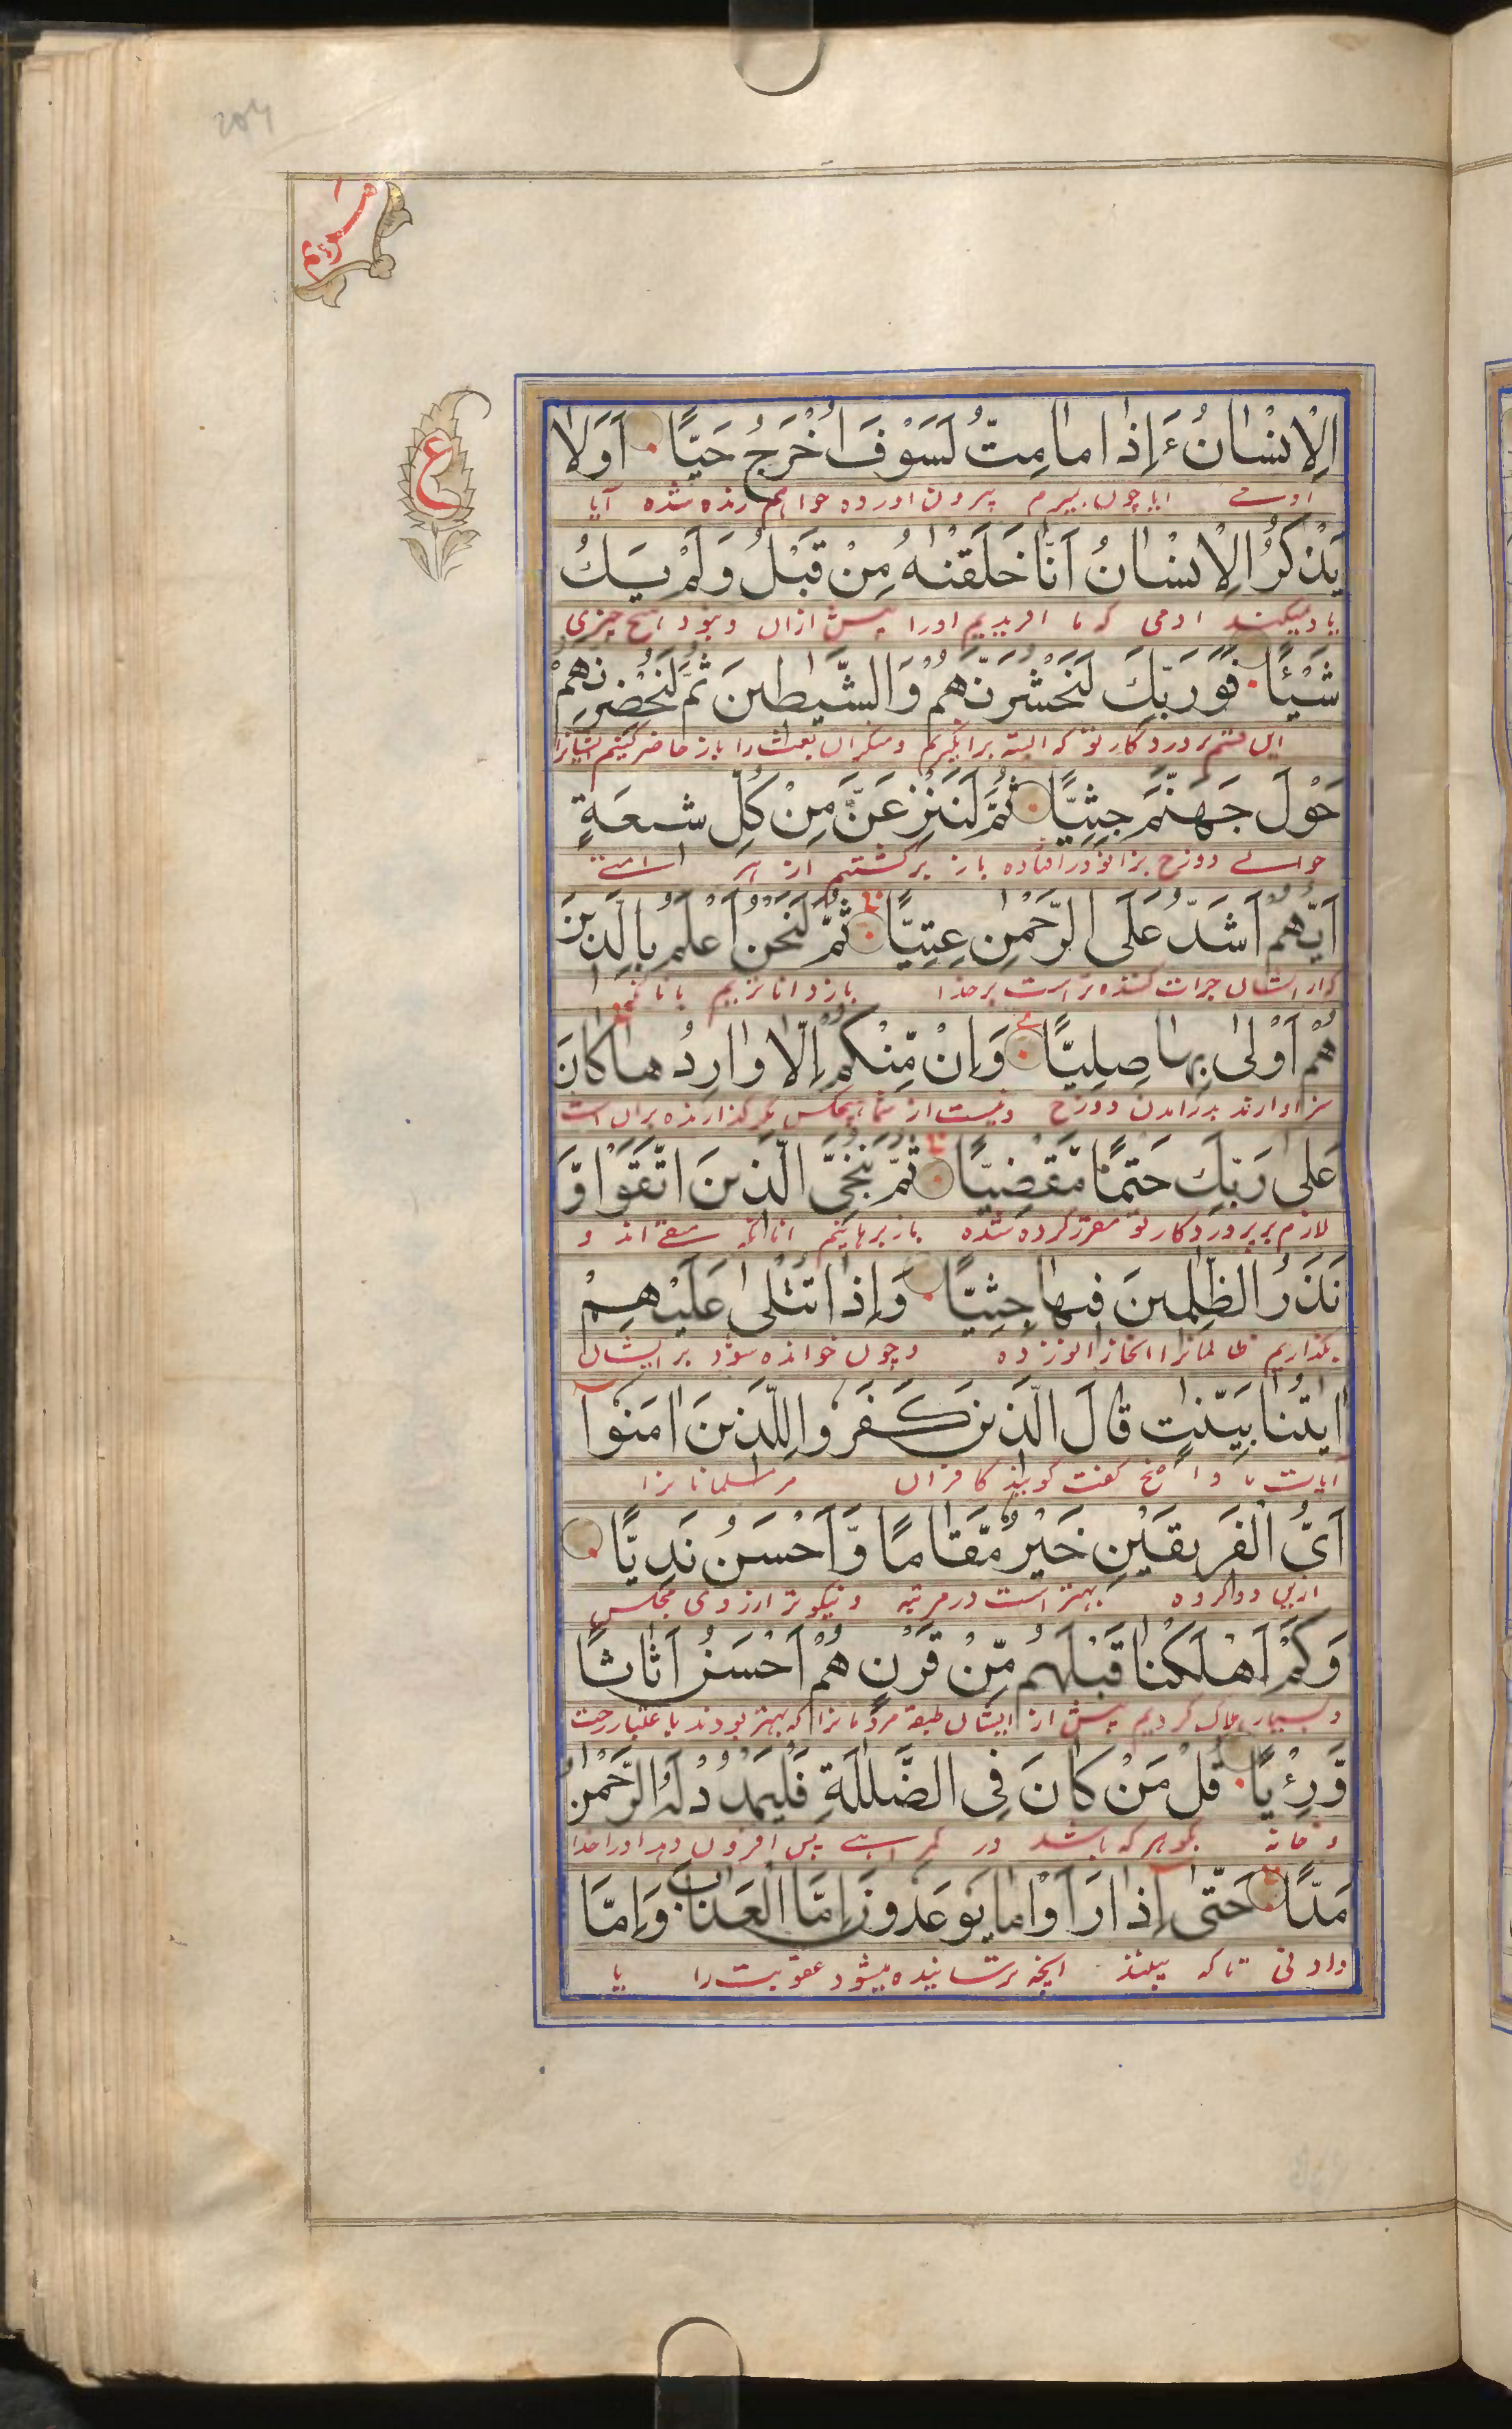 مریم
ع
الْاِنْسَانُ ءَاِذَا مَا مِتُّ لَسَوْفَ اُخْرَجُ حَيًّا اَوَلَا
ایا چون بمیرم بیرون اورده خواهم زنده شده آیا
يَذْكُرُ الْاِنْسَانُ اَنَّا خَلَقْنٰهُ مِنْ قَبْلُ وَلَمْ يَكُ
یاد میکند ادمی که ما افریدیم اورا پیش ازان و نبود هیچ چیزی
شَيْئًا فَوَرَبِّكَ لَنَحْشُرَنَّهُمْ وَالشَّيٰطِيْنَ ثُمَّ لَنُحْضِرَنَّهُمْ
پروردگار تو که البته برانگیزیم و منکران بعث را باز حاضر کنیم ایشانرا
حَوْلَ جَهَنَّمَ جِثِيًّا ثُمَّ لَنَنْزِعَنَّ مِنْ كُلِّ شِيعَةٍ
حوالے دوزخ بزانو درافتاده باز برکشیم از هر امتے
اَيُّهُمْ اَشَدُّ عَلَى الرَّحْمٰنِ عِتِيًّا ثُمَّ لَنَحْنُ اَعْلَمُ بِالَّذِيْنَ
ایشان جرات کننده تر است بر خدا باز داناتریم بانانکه
هُمْ اَوْلٰى بِهَا صِلِيًّا وَاِنْ مِّنْكُمْ اِلَّا وَارِدُهَا كَانَ
سزاوارند بدرامدن دوزخ و نیست از شما هیچکس مگر گذارنده بران است
عَلٰى رَبِّكَ حَتْمًا مَّقْضِيًّا ثُمَّ نُنَجِّى الَّذِيْنَ اتَّقَوْا وَّ
لازم بر پروردگار تو مقرر کرده شده باز برهانیم انانکه متقے اند و
نَذَرُ الظّٰلِمِيْنَ فِيْهَا جِثِيًّا وَاِذَا تُتْلٰى عَلَيْهِمْ
بگذاریم ظالمانرا انجا زانو زده و چون خوانده شود بر ایشان
اٰيٰتُنَا بَيِّنٰتٍ قَالَ الَّذِيْنَ كَفَرُوا لِلَّذِيْنَ اٰمَنُوْا
آیات ما واضح کافران مر مسلمانانرا
اَىُّ الْفَرِيْقَيْنِ خَيْرٌ مَّقَامًا وَّاَحْسَنُ نَدِيًّا
ازین دو گروه بهتر است در مرتبه و نیکوتر مجلس
وَكَمْ اَهْلَكْنَا قَبْلَهُمْ مِّنْ قَرْنٍ هُمْ اَحْسَنُ اَثَاثًا
و بسیار هلاک کردیم پیش از ایشان طبقه مردمانرا که بهتر بودند باعتبار رخت
وَّرِءْيًا قُلْ مَنْ كَانَ فِى الضَّلٰلَةِ فَلْيَمْدُدْ لَهُ الرَّحْمٰنُ
بگو هر که باشد در گمراهے پس افزون دهد اورا خدا
مَدًّا حَتّٰى اِذَا رَاَوْا مَا يُوْعَدُوْنَ اِمَّا الْعَذَابَ وَاِمَّا
تا که ببینند انچه ترسانیده میشود عقوبت را یا